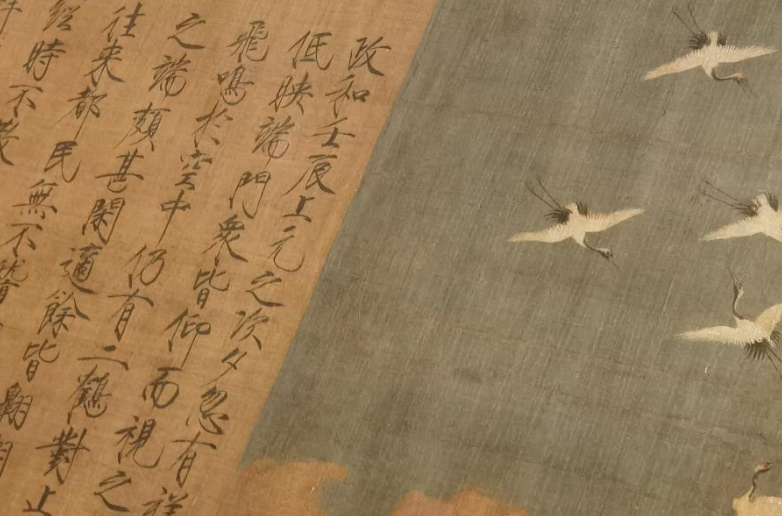 政和壬辰上元之次夕忽有祥
低映端門衆皆仰而視之
飛鳴於空中仍有二鶴對止
之端頗甚閑適餘皆翱翔
往來都民無不
時不散